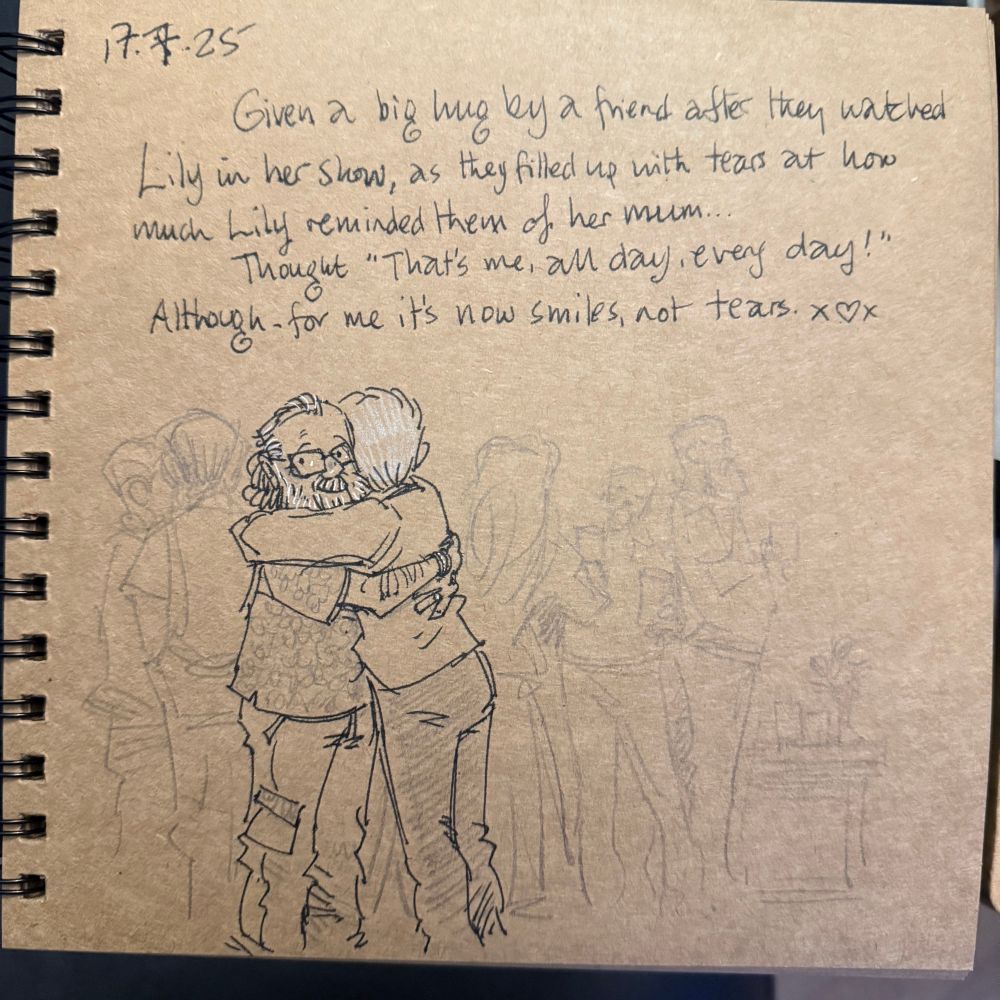 17.7.25
Given a big hug by a friend after they watched
Lily in her show, as they filled up with tears at how
much Lily reminded them of her mum...
Thought "That's me, all day, every day!"
Although - for me it's now smiles, not tears. x♡x